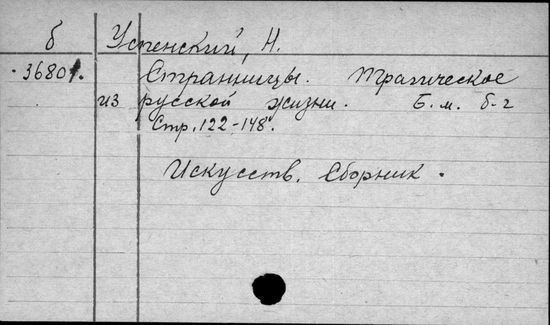 б Успенский, Н.
36801. Странницы. Трагическое
из русской жизни. Б. м. б-г
Стр. 122-148.
Искусств. Сборник.